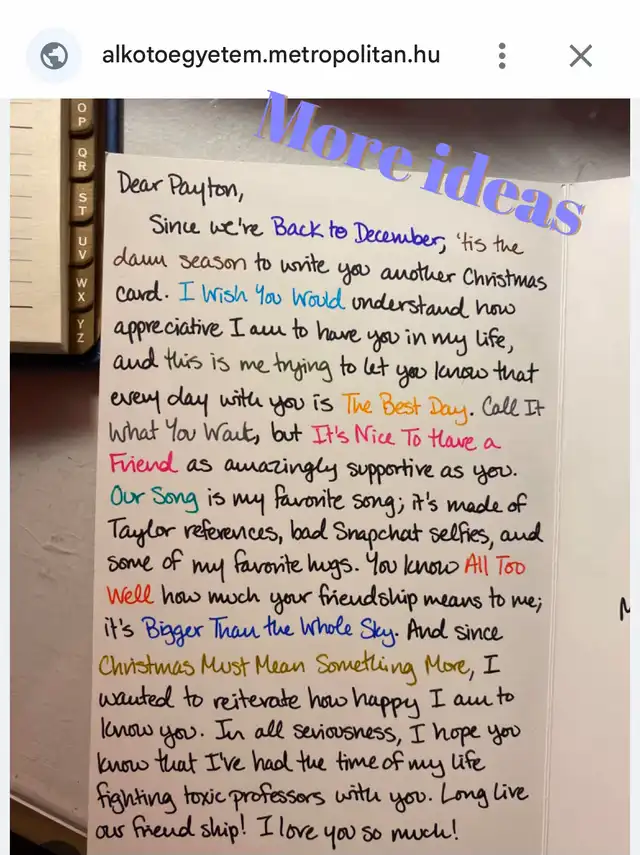 alkotoegyetem.metropolitan.hu
More ideas
O
P
Q
R
S
T
U
V
W
X
Y
Z
Dear Payton,
Since we're Back to December, 'tis the
damn season to write you another Christmas
card. I Wish You Would understand how
appreciative I am to have you in my life,
and this is me trying to let you know that
every day with you is The Best Day. Call It
What You Want, but It's Nice To Have a
Friend as amazingly supportive as you.
Our Song is my favorite song; it's made of
Taylor references, bad Snapchat selfies, and
some of my favorite hugs. You know All Too
Well how much your friendship means to me;
it's Bigger Than the Whole Sky. And since
Christmas Must Mean Something More, I
wanted to reiterate how happy I am to
know you. In all seriousness, I hope you
know that I've had the time of my life
fighting toxic professors with you. Long live
our friend ship! I love you so much!